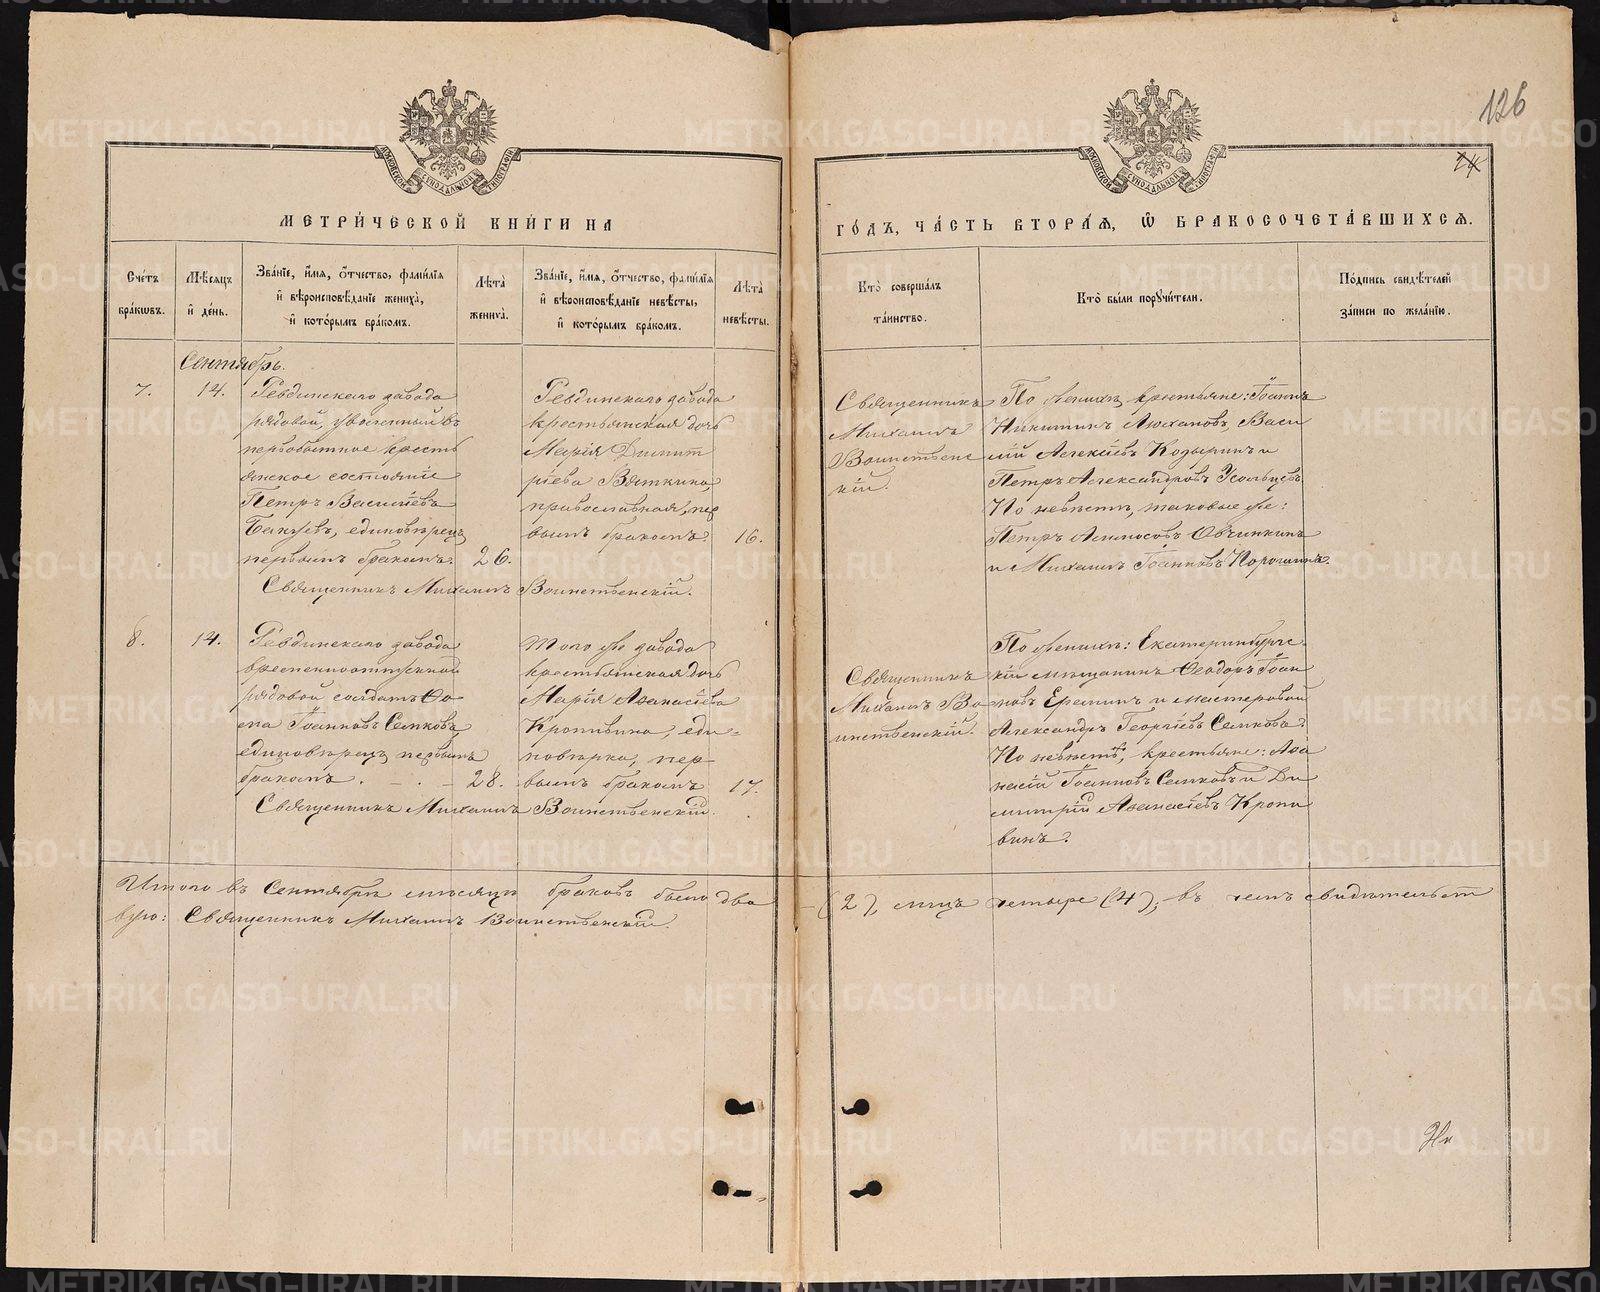 126
24
МЕТРИ́ЧЕСКОЙ КНИ́ГИ НА
ГО́ДЪ, ЧА́СТЬ ВТОРА́Я, Ѡ БРАКОСОЧЕТА́ВШИХСЯ.
Сче́тъ бра́кѡвъ.
Мѣ́сяцъ и҆ де́нь.
Зва́нїе, и҆́мя, ѻ҆́тчество, фами́лїя
и҆ вѣроисповѣ́данїе жениха̀,
и҆ кото́рымъ бра́комъ.
Лѣ́та жениха̀.
Зва́нїе, и҆́мя, ѻ҆́тчество, фами́лїя
и҆ вѣроисповѣ́данїе невѣ́сты,
и҆ кото́рымъ бра́комъ.
Лѣ́та невѣ́сты.
Кто̀ соверша́лъ
та́инство.
Кто̀ бы́ли пору́чители.
По́дпись свидѣ́телей
за́писи по жела́нїю.
Сентябрь.
7.
14.
Ревдинскаго завода
рядовой, уволенный въ
первобытное кресть
янское состояніе
Петръ Василіевъ
единовѣрецъ,
первымъ бракомъ.
26.
Ревдинскаго завода
крестьянская дочь
Марія Димит
ріева Вяткина,
православная, пер
вымъ бракомъ.
16.
Священникъ Михаилъ Воинственскій.
Священникъ
Михаилъ
Воинственс
кій.
По женихѣ, крестьяне: Іоаннъ
Никитинъ Васи
лій Алексіевъ Козыринъ и
Петръ Александровъ Усольцевъ.
По невѣстѣ, таковые же:
Петръ Овчинкинъ
и Михаилъ Іоанновъ Порошинъ.
8.
14.
Ревдинскаго завода
временноотпускной
рядовой солдатъ Ѳо
ма Іоанновъ Семковъ,
единовѣрецъ, первымъ
бракомъ.
28.
Того же завода
крестьянская дочь
Марія Аѳанасіева
Кропивина, еди-
новѣрка, пер-
вымъ бракомъ
17.
Священникъ Михаилъ Воинственскій.
Священникъ
Михаилъ Во
инственскій.
По женихѣ: Екатеринбургс-
кій мѣщанинъ Ѳеодоръ Іоан
новъ Ереминъ и мастеровой
Александръ Георгіевъ Семковъ.
По невѣстѣ, крестьяне: Аѳа
насій Іоанновъ Семковъ и Ди
митрій Аѳанасіевъ Кропи
винъ.
Итого въ Сентябрѣ мѣсяцѣ браковъ было два (2), лицъ четыре (4); въ чемъ свидѣтельст
вую: Священникъ Михаилъ Воинственскій.
METRIKI.GASO-URAL.RU